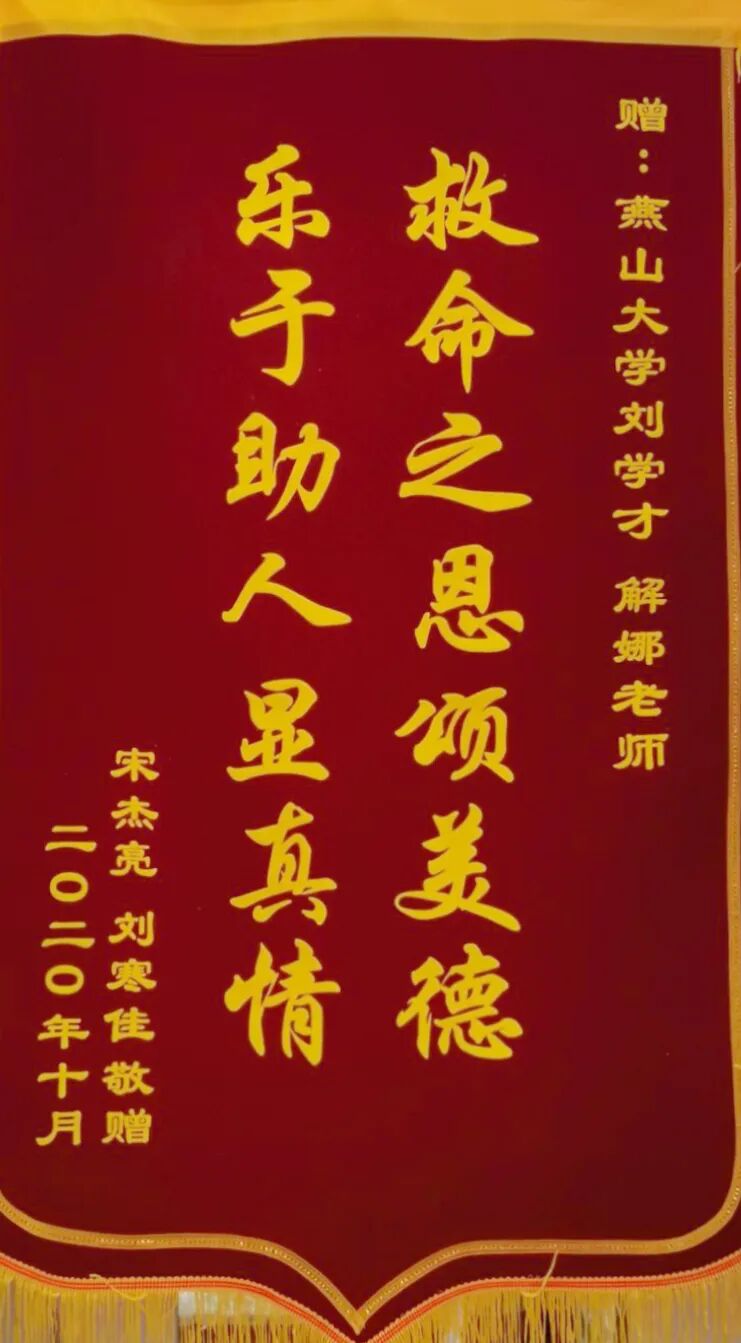 赠：燕山大学刘学才 解娜老师
救命之恩颂美德
乐于助人显真情
宋杰亮 刘寒佳敬赠
二〇二〇年十月